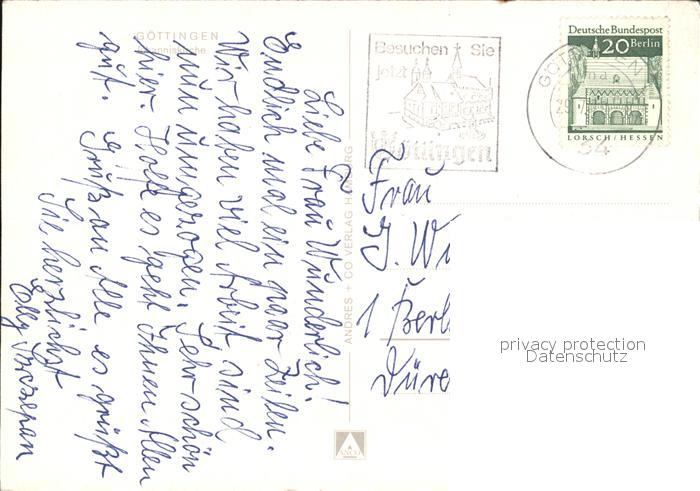 GÖTTINGEN
Johanniskirche
Liebe Frau Wunderlich!
Endlich mal ein paar Zeilen.
Wir haben viel Arbeit sind
nun umgezogen. Sehr schön
hier. Hoffe es geht Ihnen Allen
gut. Gruß an Alle es grüßt
Sie herzlichst
Elly Szczepan
ANDRES + CO VERLAG HAMBURG
ANCO
Besuchen Sie
jetzt
Göttingen
GÖTTINGEN
34
Deutsche Bundespost
20 Berlin
LORSCH/HESSEN
Frau
J. Wu
1 Berl
Düre
privacy protection
Datenschutz